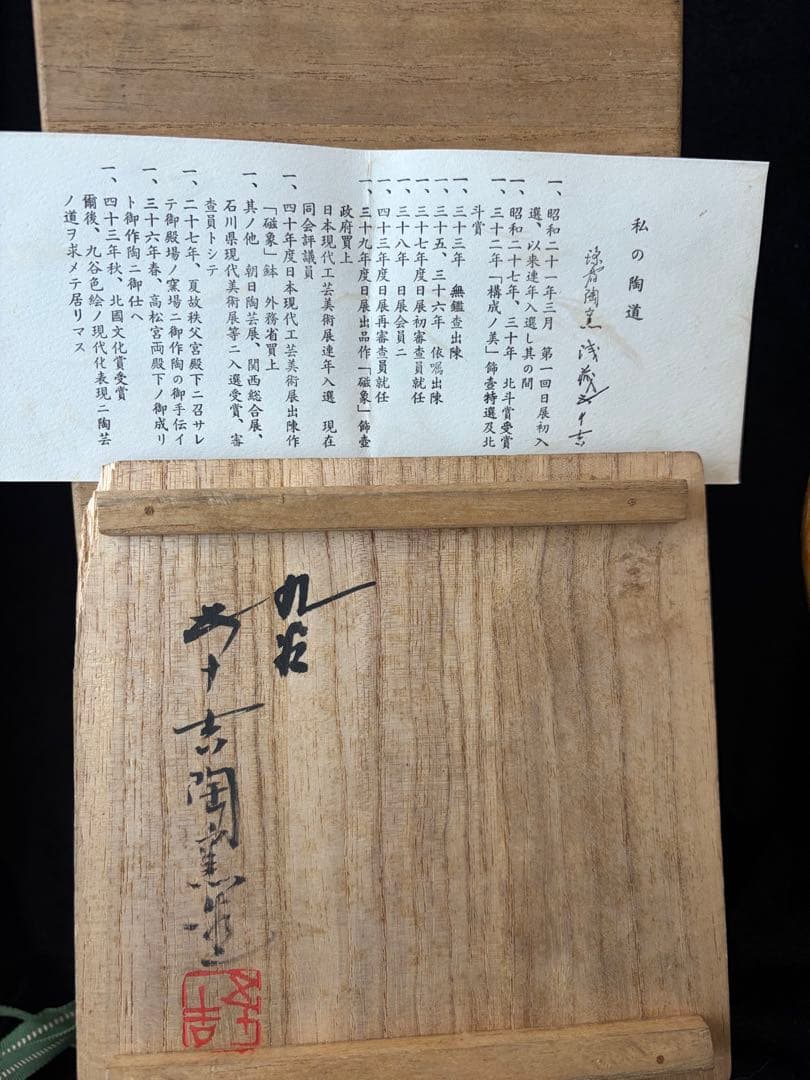 私の陶道
陶窯 浅蔵五十吉
一、昭和二十一年三月 第一回日展初入
選、以来連年入選し其の間
一、昭和二十七年、三十年 北斗賞受賞
一、三十二年「構成ノ美」飾壷特選及北
斗賞
一、三十三年 無鑑査出陳
一、三十五、三十六年 依嘱出陳
一、三十七年度日展初審査員就任
一、三十八年 日展会員ニ
一、四十三年度日展再審査員就任
一、三十九年度日展出品作「磁象」飾壷
政府買上
日本現代工芸美術展連年入選 現在
同会評議員
一、四十年度日本現代工芸美術展出陳作
「磁象」鉢 外務省買上
一、其ノ他 朝日陶芸展、関西総合展、
石川県現代美術展等ニ入選受賞、審
査員トシテ
一、二十七年、夏故秩父宮殿下ニ召サレ
テ御殿場ノ窯場ニ御作陶の御手伝イ
一、三十六年春、高松宮両殿下ノ御成リ
ト御作陶ニ御仕へ
一、四十三年秋、北國文化賞受賞
爾後、九谷色絵ノ現代化表現ニ陶芸
ノ道ヲ求メテ居リマス
九谷
五十吉陶窯造
五十吉